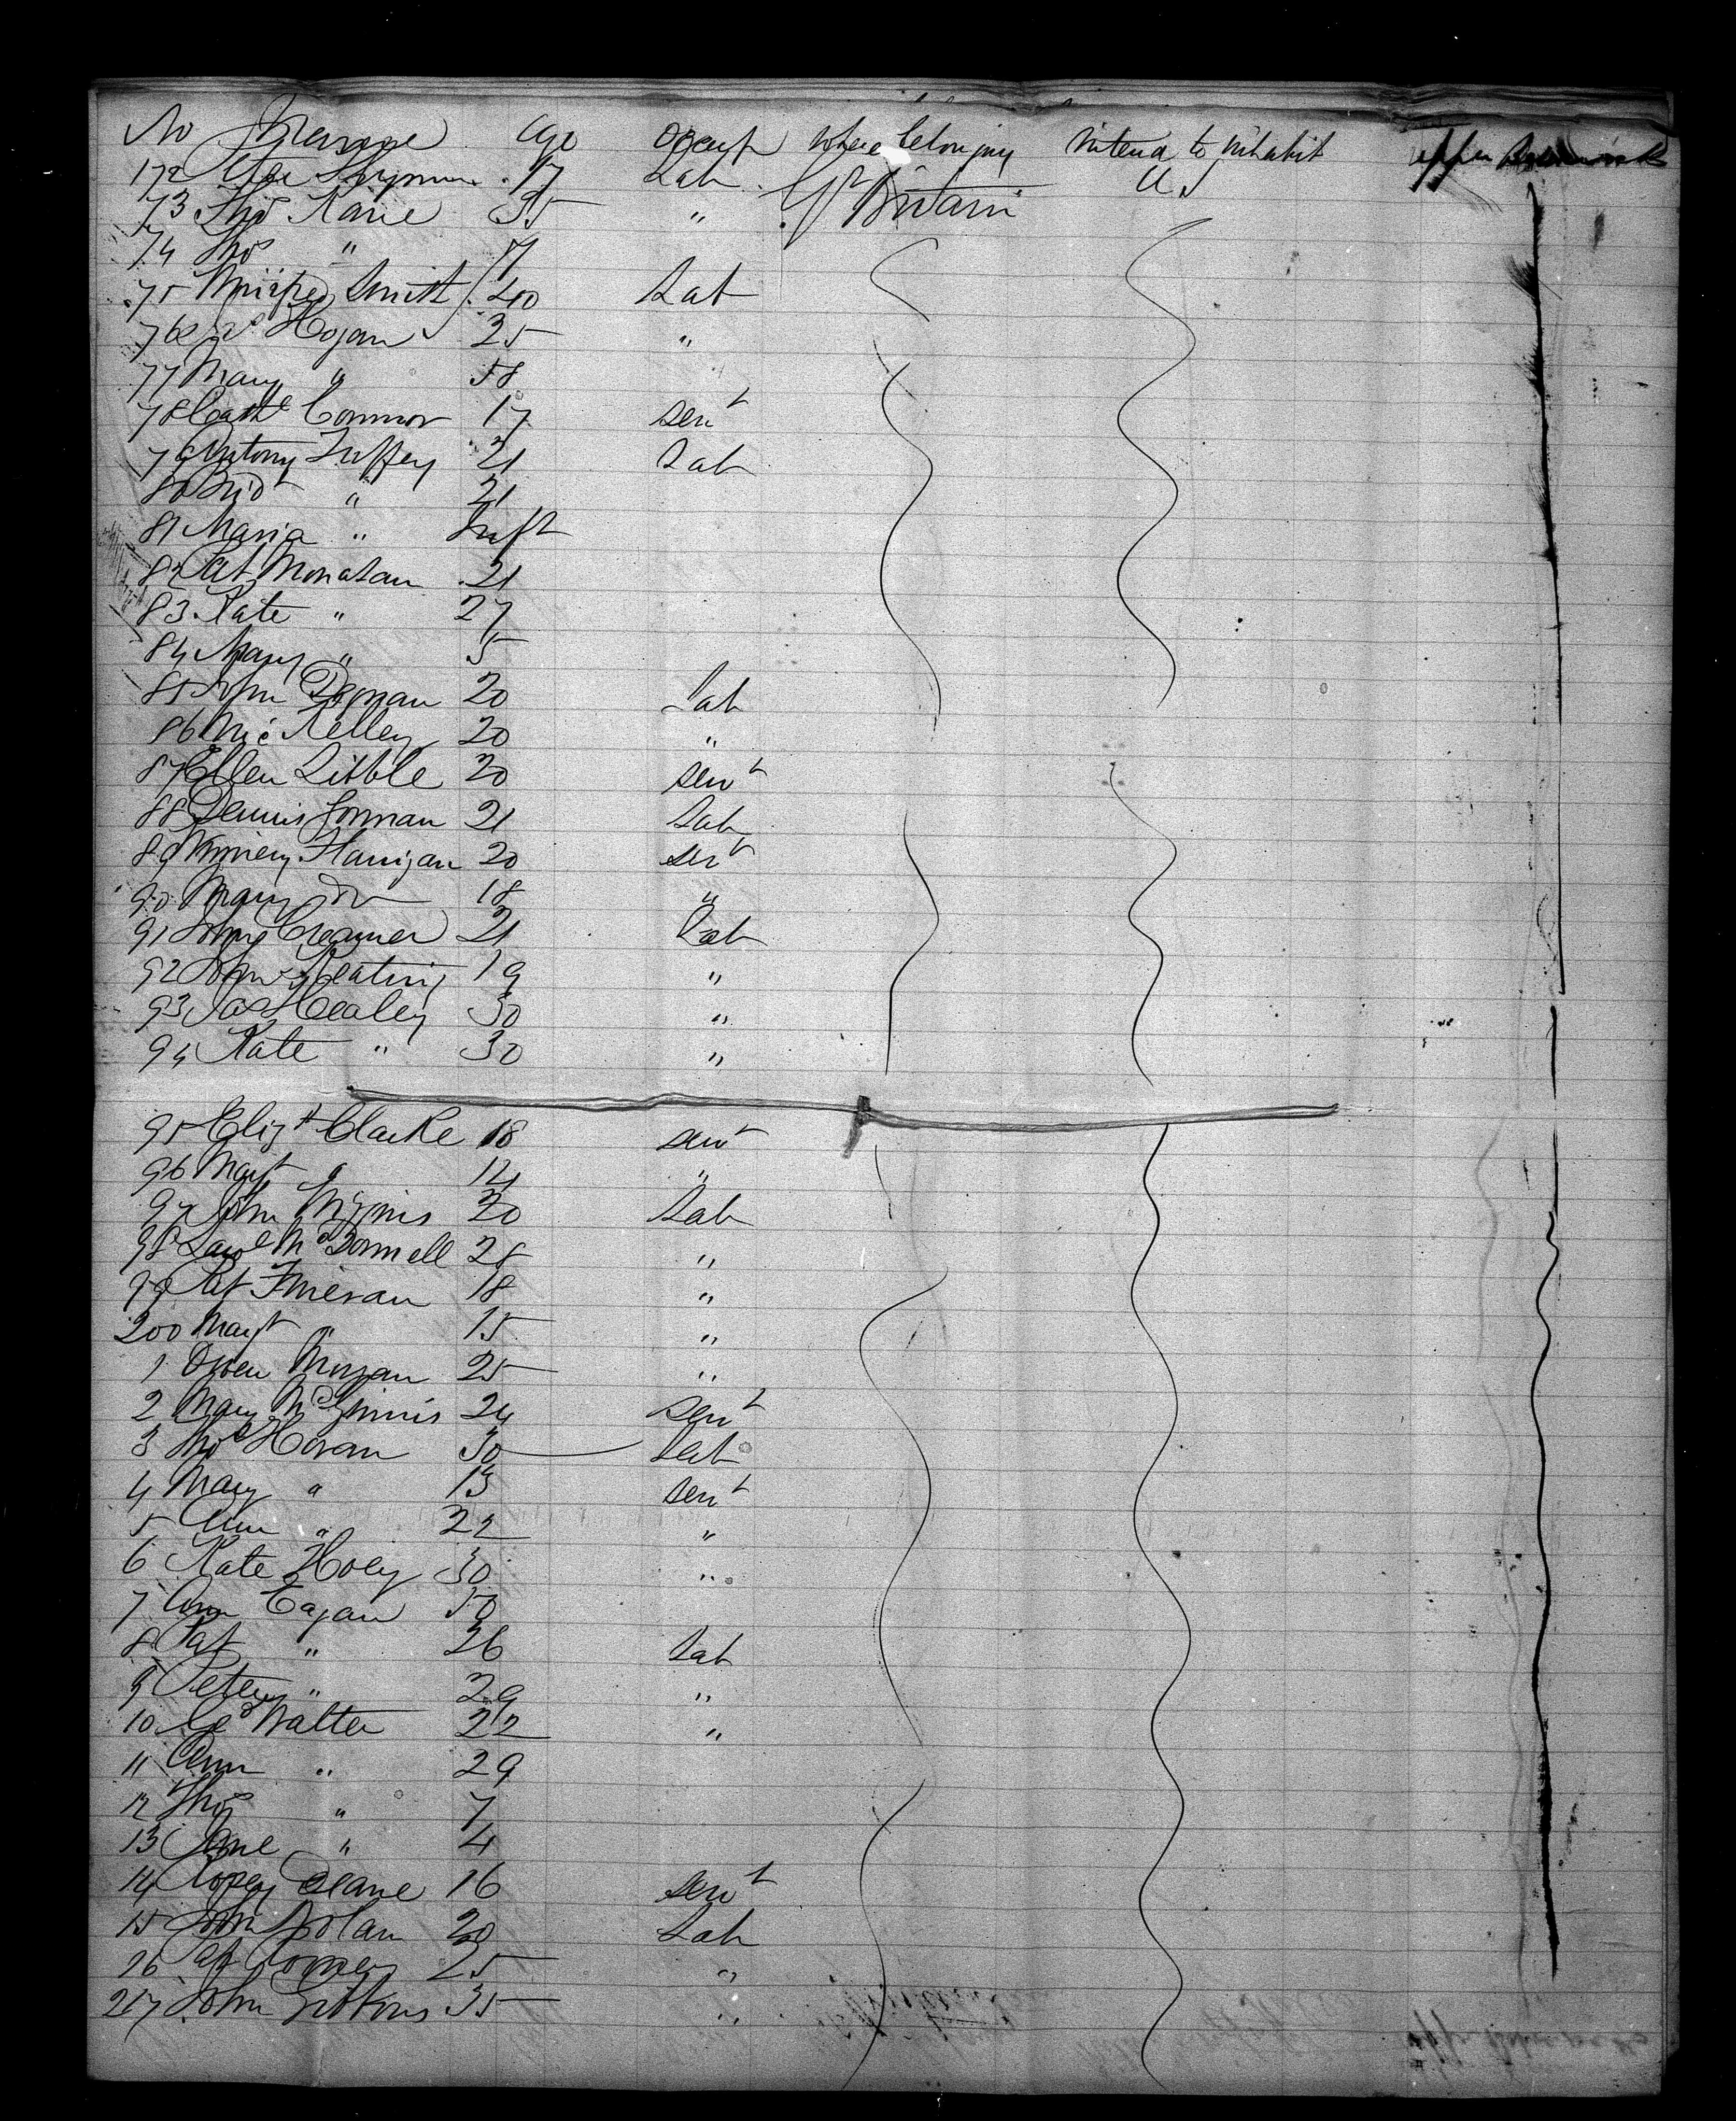 No age Occupt where belonging intend to inhabit
172 17 Lab Gt Britain U S
73 Thos Kane 35 "
74 Thos " 7
75 Smith 40 Lab
76 Hogan 35 "
77 Mary " 58
78 Cathe Connor 17 servt
79 Antony Tuffey 21 Lab
80 Brid "  21
81 Maria " Inft
82 Pat Monahan 21
83 Kate " 27
84 Mary " 5
85 John 20 Lab
86 Mic Kelley 20 "
87 Ellen Libble 20 servt
88 Dennis Gorman 21 Lab
89 Flanigan 20 servt
90 Mary Do 18 "
91 John Creamer 21 Lab
92 John Keating 19 "
93 Jas Healey 30 "
94 Kate " 30 "
95 Elizth Clarke 18 servt
96 Margt " 14 "
97 John 20 Lab
98 McDonnell 28 "
99 Pat 18 "
200 Margt " 15 "
1 Owen Morgan 25 "
2 Mary McGinnis 24 servt
3 Thos Horan 30 Lab
4 Mary " 13 servt
5 Ann " 22 "
6 Kate Hoey 30 "
7 Ann Eagan 50
8 Pat " 26 Lab
9 Peter " 29 "
10 Geo Walter 22 "
11 Ann " 29
12 Thos " 7
13 Jane " 4
14 Rosey Deane 16 servt
15 John Nolan 20 Lab
16 Pat 25 "
217 John Gibbons 35 "